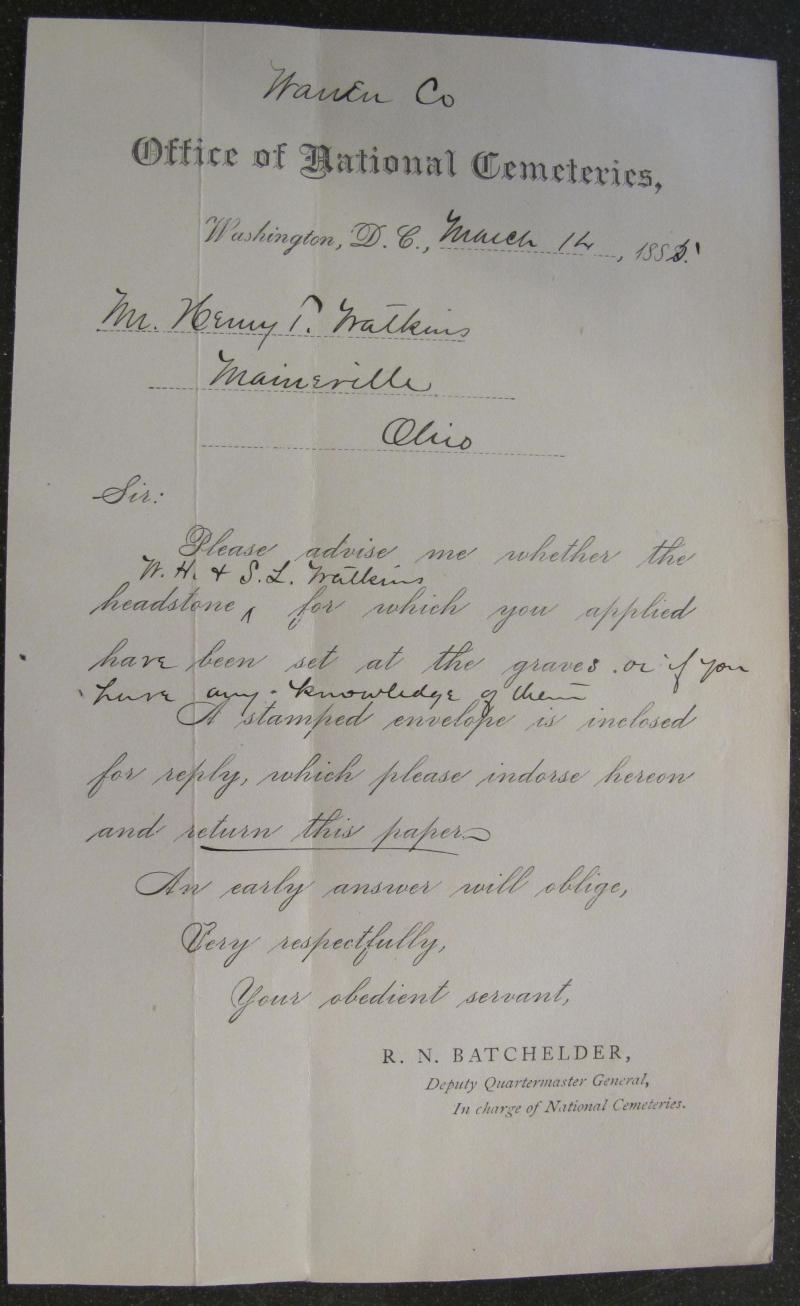 Warren Co
Office of National Cemeteries,
Washington, D. C., March 14, 1885.
Mr. Henry T. Watkins
Maineville
Ohio
Sir:
Please advise me whether the
W. H. & S. L. Watkins
headstone ^ for which you applied
have been set at the graves. or if you
have any knowledge of them
A stamped envelope is inclosed
for reply, which please indorse hereon
and return this paper.
An early answer will oblige,
Very respectfully,
Your obedient servant,
R. N. BATCHELDER,
Deputy Quartermaster General,
In charge of National Cemeteries.